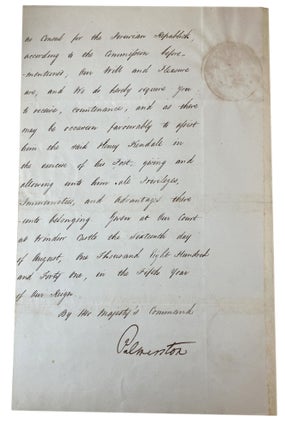 as Consul for the Peruvian Republick
according to the Commission before-
mentioned, Our Will and Pleasure
are, and We do hereby require You
to receive, countenance, and as there
may be occasion favourably to assist
him the said Henry Kendall in
the exercise of his Post, giving and
allowing unto him all Privileges,
Immunities, and Advantages there-
unto belonging. Given at Our Court
at Windsor Castle the Sixteenth day
of August, One Thousand Eight Hundred
and Forty One, in the Fifth Year
of Our Reign.
By Her Majesty's Command
Palmerston